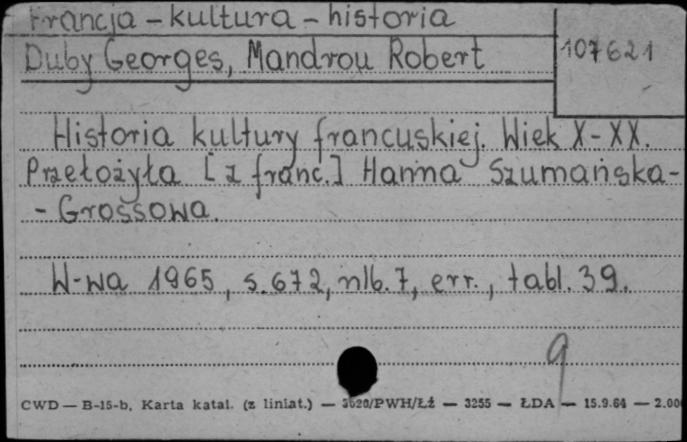 Francja - kultura - historia
Duby Georges, Mandrou Robert
107621
Historia kultury francuskiej. Wiek X-XX.
Przełożyła [z franc.] Hanna Szumańska-
- Grossowa.
W-wa 1965, s. 672, nlb. 7, err., tabl. 39.
9
CWD — B-15-b, Karta katal. (z liniat.) — 3620/PWH/Łź — 3255 — ŁDA — 15.9.64 — 2.00